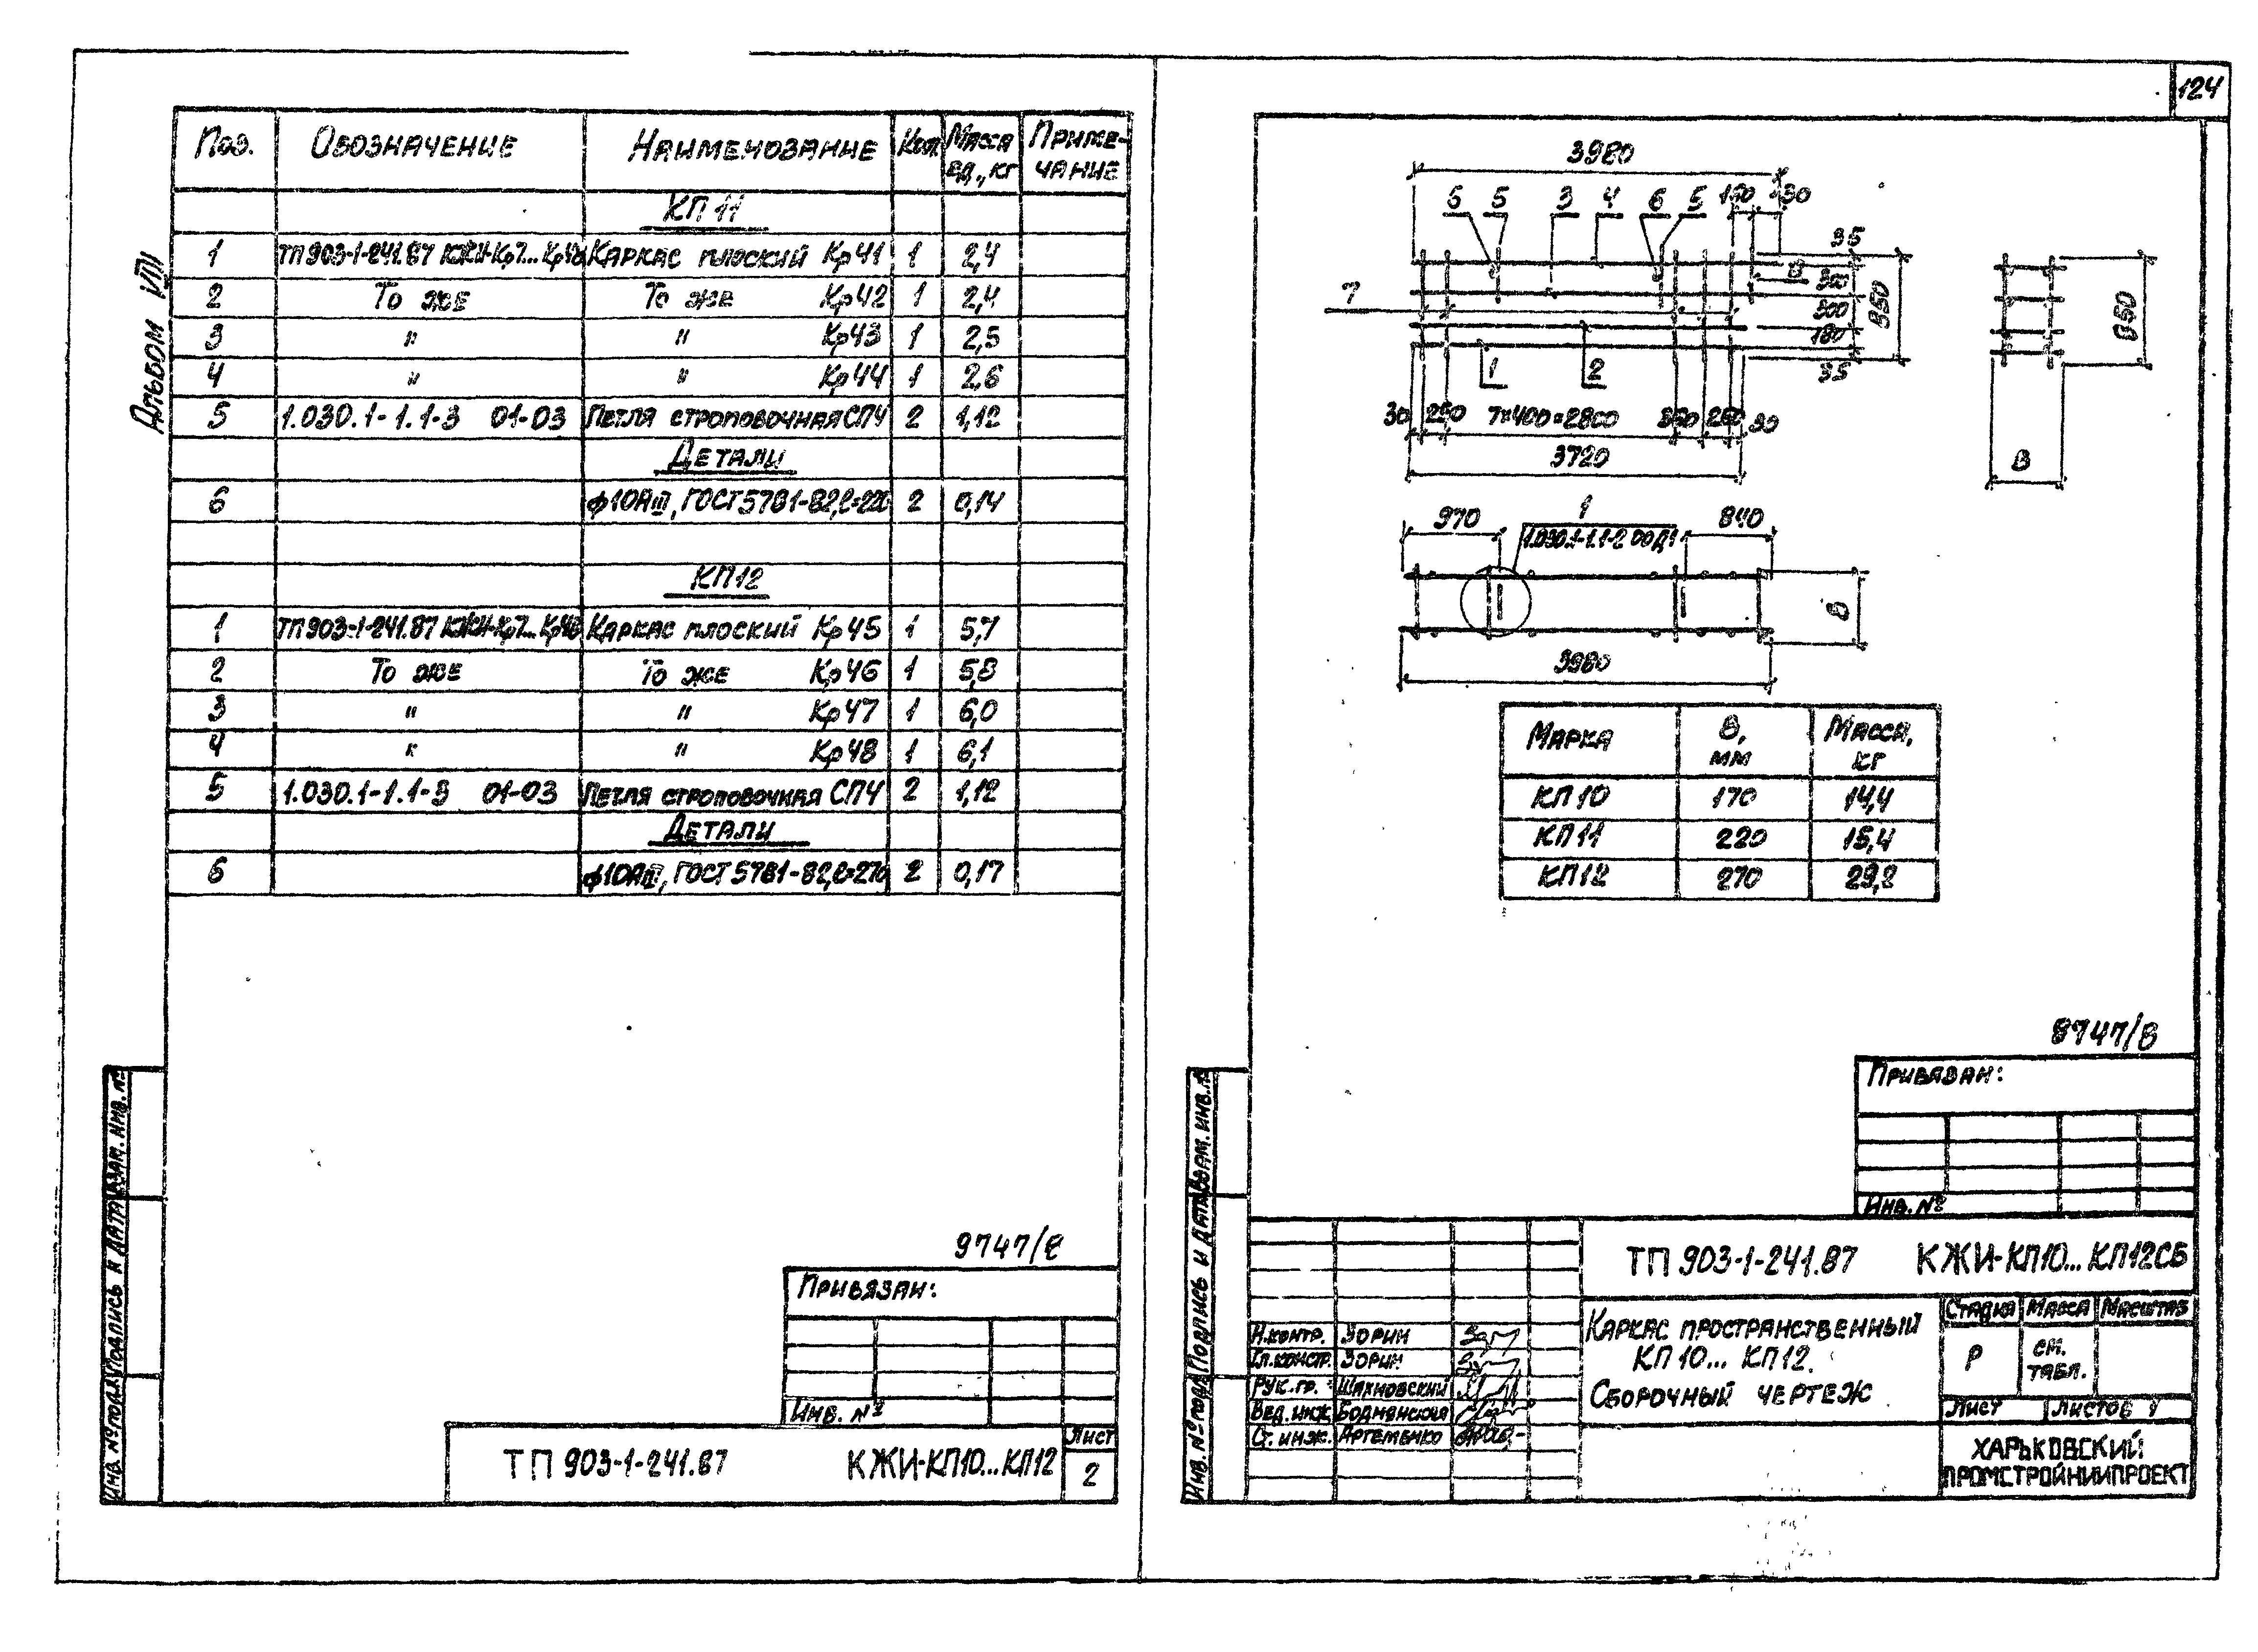 124
Альбом VIII
Поз. Обозначение Наименование Кол. Масса ед., кг Приме-чание
КП 11
1 ТП903-1-241.87 КЖИ-Кр7... Кр48 Каркас плоский Кр41 1 2,4
2 То же То же Кр42 1 2,4
3 " " Кр43 1 2,5
4 " " Кр44 1 2,6
5 1.030.1-1.1-3 01-03 Петля строповочная СП4 2 1,12
Детали
6 ф10АIII, ГОСТ 5781-82, ℓ=220 2 0,14
КП12
1 ТП903-1-241.87 КЖИ-Кр7... Кр48 Каркас плоский Кр45 1 5,7
2 То же То же Кр46 1 5,8
3 " " Кр47 1 6,0
4 " " Кр48 1 6,1
5 1.030.1-1.1-3 01-03 Петля строповочная СП4 2 1,12
Детали
6 ф10АIII, ГОСТ 5781-82, ℓ=270 2 0,17
9747/8
Привязан:
Инв. №
ТП 903-1-241.87 КЖИ-КП10...КП12
Лист
2
Инв. № подл. Подпись и дата Взам. инв. №
3980
5 3 4 6 5
35
В
300
300
180
35
7
1 2
30 250 7×400=2800 250 30
3720
В
970 1 840
1.030.1-1.1-2
В
3980
Марка В, мм Масса, кг
КП 10 170 14,4
КП 11 220 15,4
КП 12 270 29,2
8747/8
Привязан:
Инв. №
ТП 903-1-241.87 КЖИ-КП10... КП12СБ
Каркас пространственный
КП 10... КП12.
Сборочный чертеж
Стадия Масса Масштаб
Р см. табл.
Лист Листов 1
Харьковский
Промстройниипроект
Н.контр. Зорин
Гл.констр. Зорин
Рук. гр. Шахновский
Вед. инж. Боднянская
Ст. инж. Артеменко
Инв. № подл. Подпись и дата Взам. инв. №